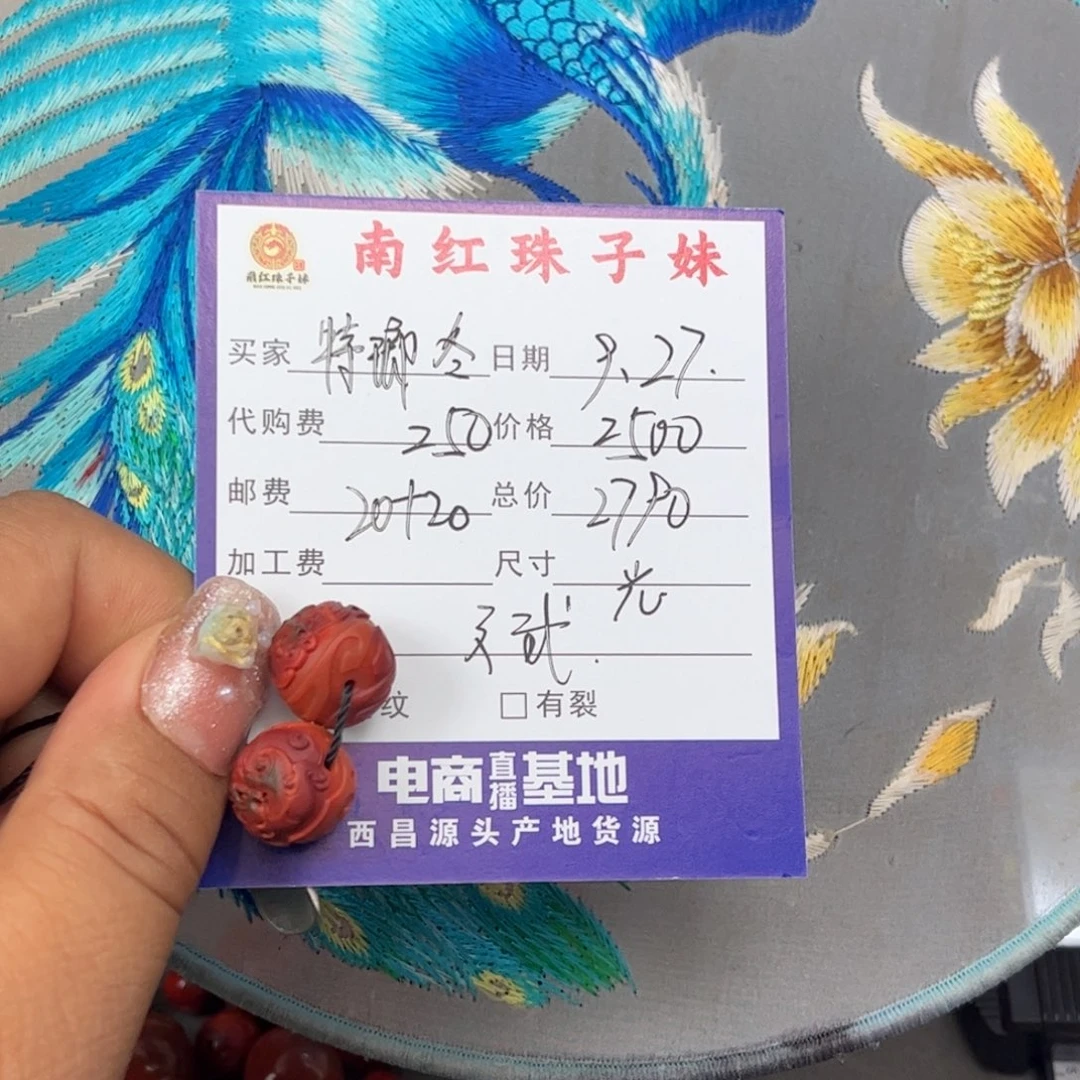 南红珠子妹
南红珠子妹
买家 特瑯冬 日期 9.27.
代购费 250 价格 2500
邮费 20+20 总价 2790
加工费 尺寸
光
纹 □有裂
电商直播基地
西昌源头产地货源